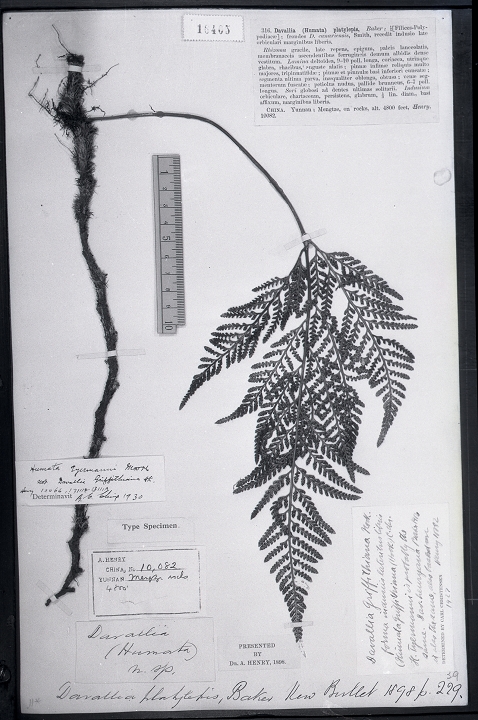 16465
316. Davallia (Humata) platylepis, Baker; [Filices-Poly-
podiaceæ]; frondes D. canariensis, Smith, recedit indusio late
orbiculari marginibus liberis.
Rhizoma gracile, late repens, epigeum, paleis lanceolatis,
membranaceis ferrugineis demum albidis dense
vestitum. Lamina deltoidea, 9-10 poll. longa, coriacea, utrinque
glabra, rhachibus anguste alatis; pinnæ infimæ reliquis multo
majores, tripinnatifidæ; pinnæ et pinnulæ basi inferiori cuneatæ;
segmenta ultima parva, inequaliter oblonga, obtusa; venæ seg-
mentorum furcatæ; petiolus nudus, pallide brunneus, 6-7 poll.
longus. Sori globosi ad dentes ultimas solitarii. Indusium
orbiculare, chartaceum, persistens, glabrum, lin. diam., basi
affixum, marginibus liberis.
CHINA. Yunnan: Mengtze, on rocks, alt. 4800 feet, Henry,
10082.
1
5
10
Humata Tyermanni Moore
Davallia Griffithiana Hk.
Determinavit 1930
Type Specimen.
A. HENRY
CHINA, No 10,082
YUNNAN Mengtze rocks
4800'
Davallia
(Humata)
n. sp.
PRESENTED
BY
DR. A. HENRY, 1898.
Davallia Griffithiana Hook.
(Humata Griffithiana (Hook.) C. Chr.
H. Tyermanni is probably the
same.
DETERMINED BY CARL CHRISTENSEN
Davallia platylepis, Baker Kew Bullet 1898 p. 229.